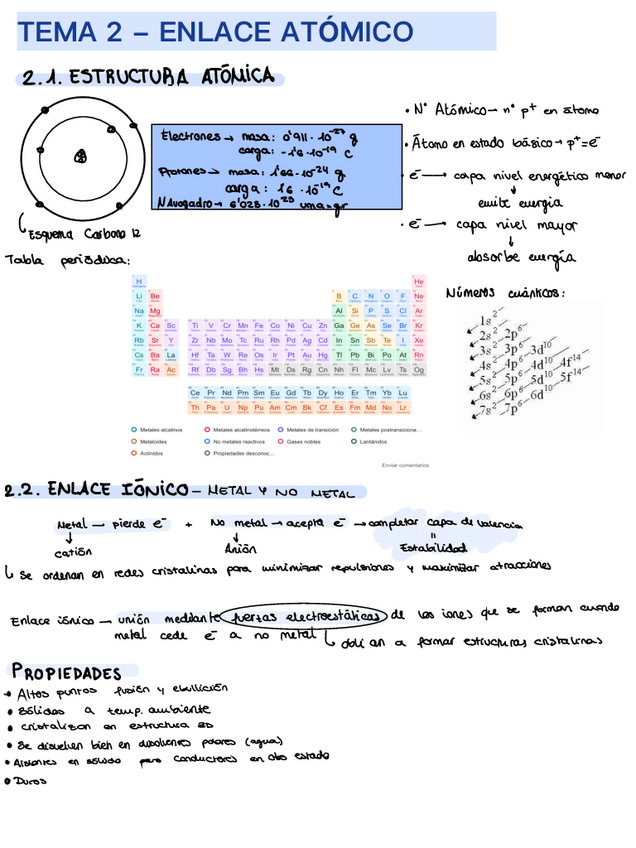 TEMA 2 – ENLACE ATÓMICO
2.1. ESTRUCTURA ATÓMICA
Electrones → masa: 0'911·10⁻²⁷ g
carga: -1'6·10⁻¹⁹ C
Protones → masa: 1'66·10⁻²⁴ g
carga: 1'6·10⁻¹⁹ C
N Avogadro → 6'023·10²³ uma=gr
Esquema Carbono 12
• Nº Atómico → nº p⁺ en átomo
• Átomo en estado básico → p⁺=e⁻
e⁻ → capa nivel energético menor
↓
emite energía
• e⁻ → capa nivel mayor
↓
absorbe energía
Tabla periódica:
H He
Li Be B C N O F Ne
Na Mg Al Si P S Cl Ar
K Ca Sc Ti V Cr Mn Fe Co Ni Cu Zn Ga Ge As Se Br Kr
Rb Sr Y Zr Nb Mo Tc Ru Rh Pd Ag Cd In Sn Sb Te I Xe
Cs Ba La Hf Ta W Re Os Ir Pt Au Hg Tl Pb Bi Po At Rn
Fr Ra Ac Rf Db Sg Bh Hs Mt Ds Rg Cn Nh Fl Mc Lv Ts Og
Ce Pr Nd Pm Sm Eu Gd Tb Dy Ho Er Tm Yb Lu
Th Pa U Np Pu Am Cm Bk Cf Es Fm Md No Lr
Metales alcalinos Metales alcalinotérreos Metales de transición Metales postransiciona...
Metaloides No metales reactivos Gases nobles Lantánidos
Actínidos Propiedades desconoc...
Enviar comentarios
Números cuánticos:
1s²
2s² 2p⁶
3s² 3p⁶ 3d¹⁰
4s² 4p⁶ 4d¹⁰ 4f¹⁴
5s² 5p⁶ 5d¹⁰ 5f¹⁴
6s² 6p⁶ 6d¹⁰
7s² 7p⁶
2.2. ENLACE IÓNICO – METAL Y NO METAL
Metal → pierde e⁻ + No metal → acepta e⁻ → completar capa de valencia
↓ ↓ =
catión Anión Estabilidad
Se ordenan en redes cristalinas para minimizar repulsiones y maximizar atracciones
Enlace iónico → unión mediante fuerzas electroestáticas de los iones que se forman cuando
metal cede e⁻ a no metal a formar estructuras cristalinas
PROPIEDADES
• Altos puntos fusión y ebullición
• Sólidos a temp. ambiente
• cristalizan en estructura 3D
• Se disuelven bien en disolventes polares (agua)
• Aislantes en sólido pero conductores en otro estado
• Duros